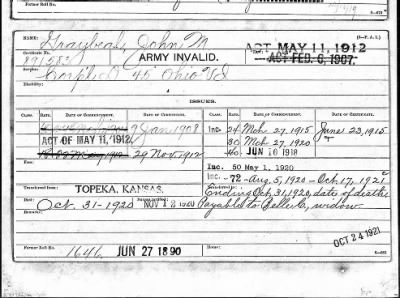 NAME: Graybeal, John M (3-P. A. I.)
Certificate No. ARMY INVALID. ACT MAY 11, 1912
891582 ACT FEB. 6, 1907.
Service: Corpl 45 Ohio
Disability:
ISSUES.
CLASS. DATE OF COMMENCEMENT. DATE OF CERTIFICATE. CLASS. DATE OF COMMENCEMENT. DATE OF CERTIFICATE.
9 Jan 1908 Inc 24 Mch 27, 1915 June 23, 1915
ACT OF MAY 11, 1912. 30 Mch 27, 1920
29 Nov 1912 40 JUN 10 1918
Inc. 50 May 1, 1920
-72- Aug 5, 1920 - Oct 17, 1921
Transferred from TOPEKA, KANSAS. Ending Oct 31, 1920, date of death
Oct 31-1920 NOV 12 1920 Payable to Belle C, widow
OCT 24 1921
Former Roll No. 1646 JUN 27 1890 Home: